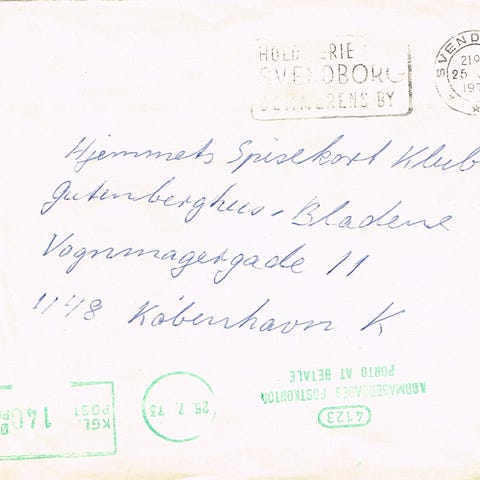 HOLD FERIE
SVENDBORG
SOMMERENS BY
SVEND
21
25
197
Hjemmets Spisekort Klub
Gutenberghus - Bladene
Vognmagergade 11
1148 København K
4123
KØBMAGERGADES POSTKONTOR
PORTO AT BETALE
26.7.73
KGL.
POST
140